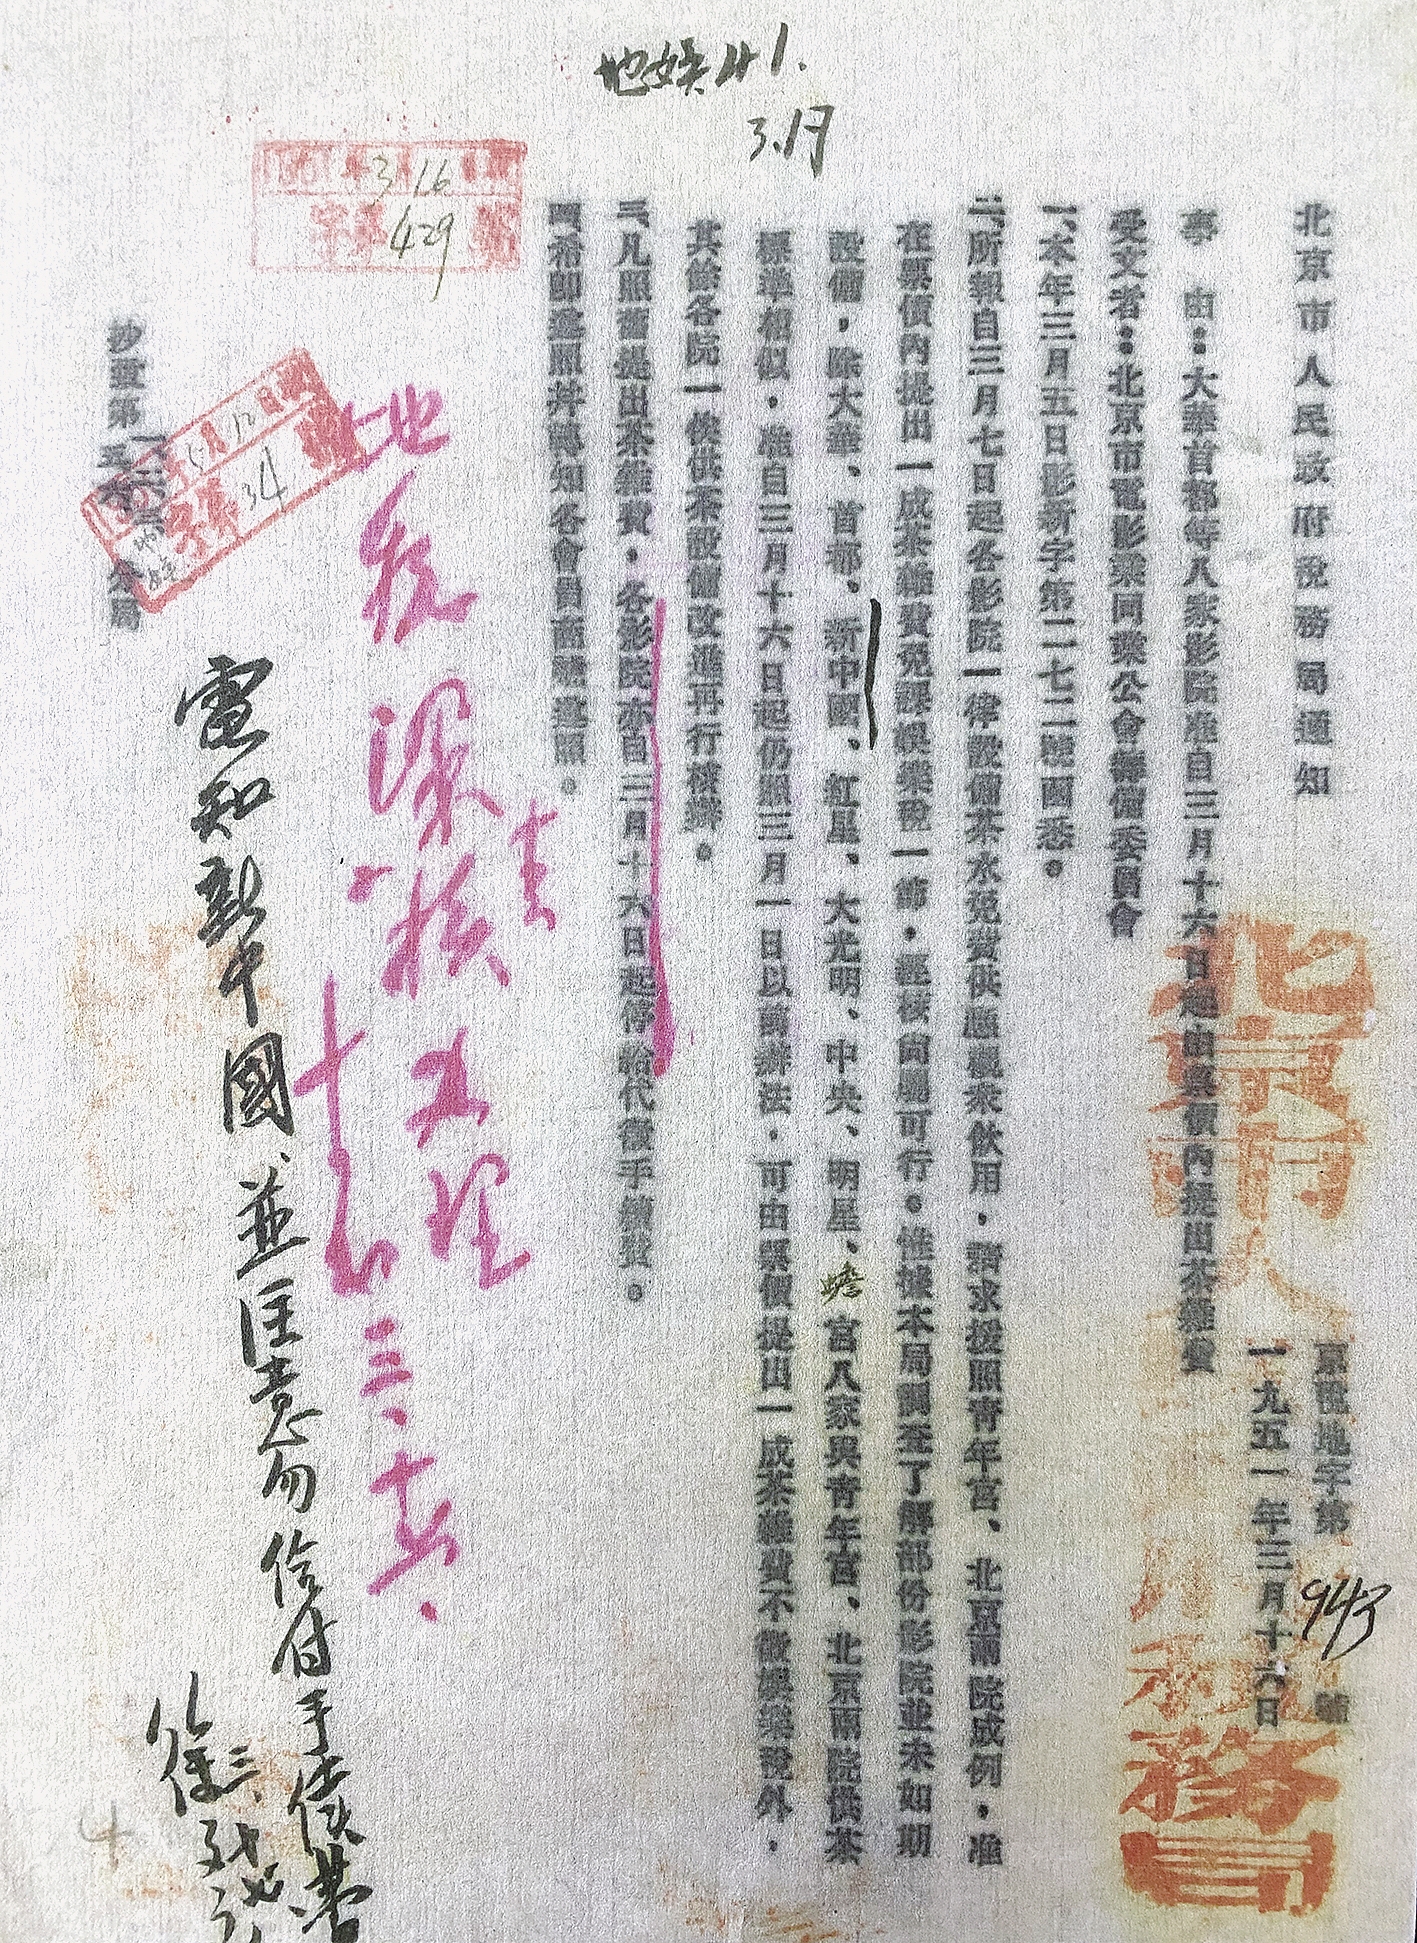 地娛41.
3.1月
北京市人民政府稅務局通知
京稅地字第943號
一九五一年三月十六日
事由：大華首都等八家影院准自三月十六日起由票價內提出茶雜費
受文者：北京市電影業同業公會籌備委員會
一、本年三月五日影新字第二七二號函悉。
二、所報自三月七日起各影院一律設備茶水免費供應觀眾飲用，請求援照青年宮、北京兩院成例，准
在票價內提出一成茶雜費免課娛樂稅一節，經核尚屬可行。惟據本局調查了解部份影院並未如期
設備，除大華、首都、新中國、紅星、大光明、中央、明星、蟾宮八家與青年宮、北京兩院供茶
標準相似，准自三月十六日起仍照三月一日以前辦法，可由票價提出一成茶雜費不徵娛樂稅外，
其餘各院一俟供茶設備改進再行核辦。
三、凡照舊提出茶雜費，各影院亦自三月十六日起停給代徵手續費。
四、希即遵照并轉知各會員面體遵照。
3 16
字第429號
地
深
核
三、十六、
抄致第五
分局
字第34號
電知新中國、並注意勿給付手續費
徐
三、
4
北京市人
稅務局